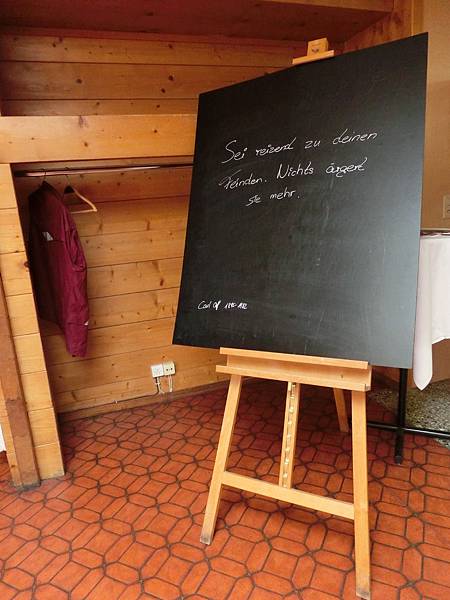 Sei reizend zu deinen
Feinden. Nichts ärgert
sie mehr.
Carl Orff 1895-1982